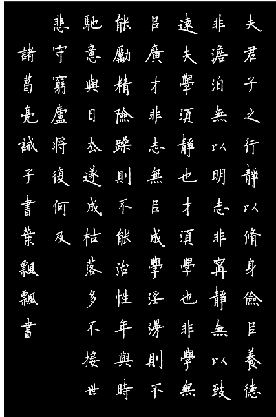 夫君子之行靜以脩身儉㠯養德
非澹泊無以明志非寧靜無以致
遠夫學須靜也才須學也非學無
㠯廣才非志無㠯成學淫漫則不
能勵精險躁則不能治性年與時
馳意與日去遂成枯落多不接世
悲守窮廬將復何及
諸葛亮誡子書葉飄飄書